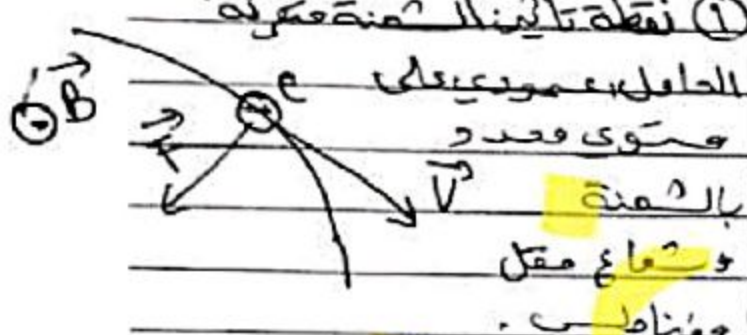 ① نقطة تأثير الشحنة متحركة
الحامل: عمودي على
مستوى محدد
بالشحنة
وشعاع حقل
مغناطيسي .
B
e
F
V